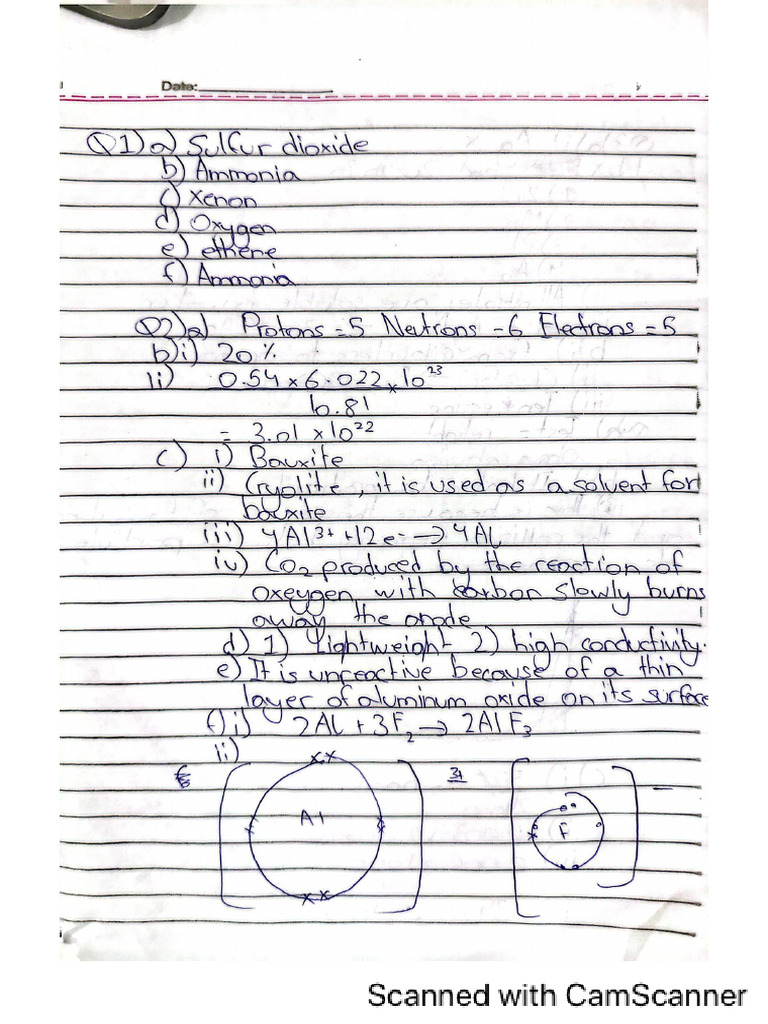 Date:
Q1) a) Sulfur dioxide
b) Ammonia
c) Xenon
d) Oxygen
e) ethene
f) Ammonia
Q2) a) Protons = 5 Neutrons = 6 Electrons = 5
b) i) 20 %
ii) 0.54 x 6.022 x 10²³
10.81
= 3.01 x 10²²
c) i) Bauxite
ii) Cryolite, it is used as a solvent for
bauxite
iii) 4Al³⁺ + 12e⁻ → 4Al
iv) CO₂ produced by the reaction of
oxeygen with carbon slowly burns
away the anode
d) 1) Lightweight 2) high conductivity.
e) It is unreactive because of a thin
layer of aluminum oxide on its surface
f) i) 2Al + 3F₂ → 2AlF₃
ii)
3+
Al
F
Scanned with CamScanner